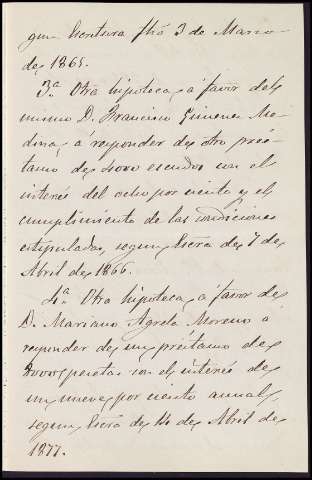 gun Escritura fhã 3 de Marzo
de 1865.
3.ª Otra hipoteca á favor del
mismo D. Francisco Gimenez Me-
dina, á responder de otro prés-
tamo de 4000 escudos con el
interés del ocho por ciento y el
cumplimiento de las condiciones
estipuladas, segun Escrã de 7 de
Abril de 1866.
4.ª Otra hipoteca, á favor de
D. Mariano Agrela Moreno á
responder de un préstamo de
pesetas con el interés de
un nueve por ciento anual,
segun Escrã de 14 de Abril de
1877.